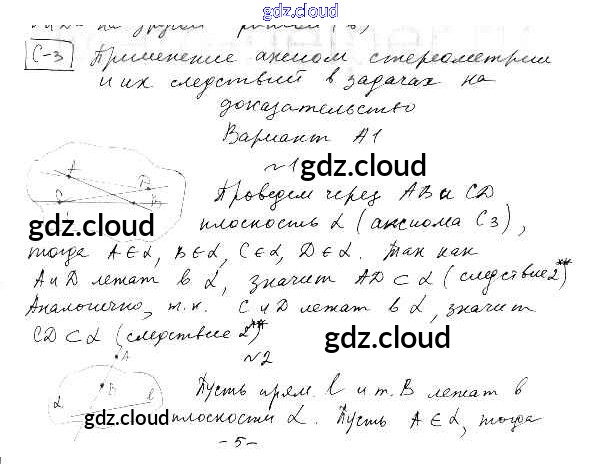 gdz.cloud
С-3 Применение аксиом стереометрии
и их следствий в задачах на
доказательство
Вариант А1
№1
gdz.cloud
Проведем через АВ и CD
gdz.cloud
плоскость α (аксиома С3),
тогда A∈α, B∈α, C∈α, D∈α. Так как
А и D лежат в α, значит AD⊂α (следствие 2**)
Аналогично, т.к. С и D лежат в α, значит
CD⊂α (следствие 2**)
gdz.cloud
№2
A
B
α
l
Пусть прям. l и т. В лежат в
gdz.cloud
плоскости α. Пусть A∈α, тогда
-5-